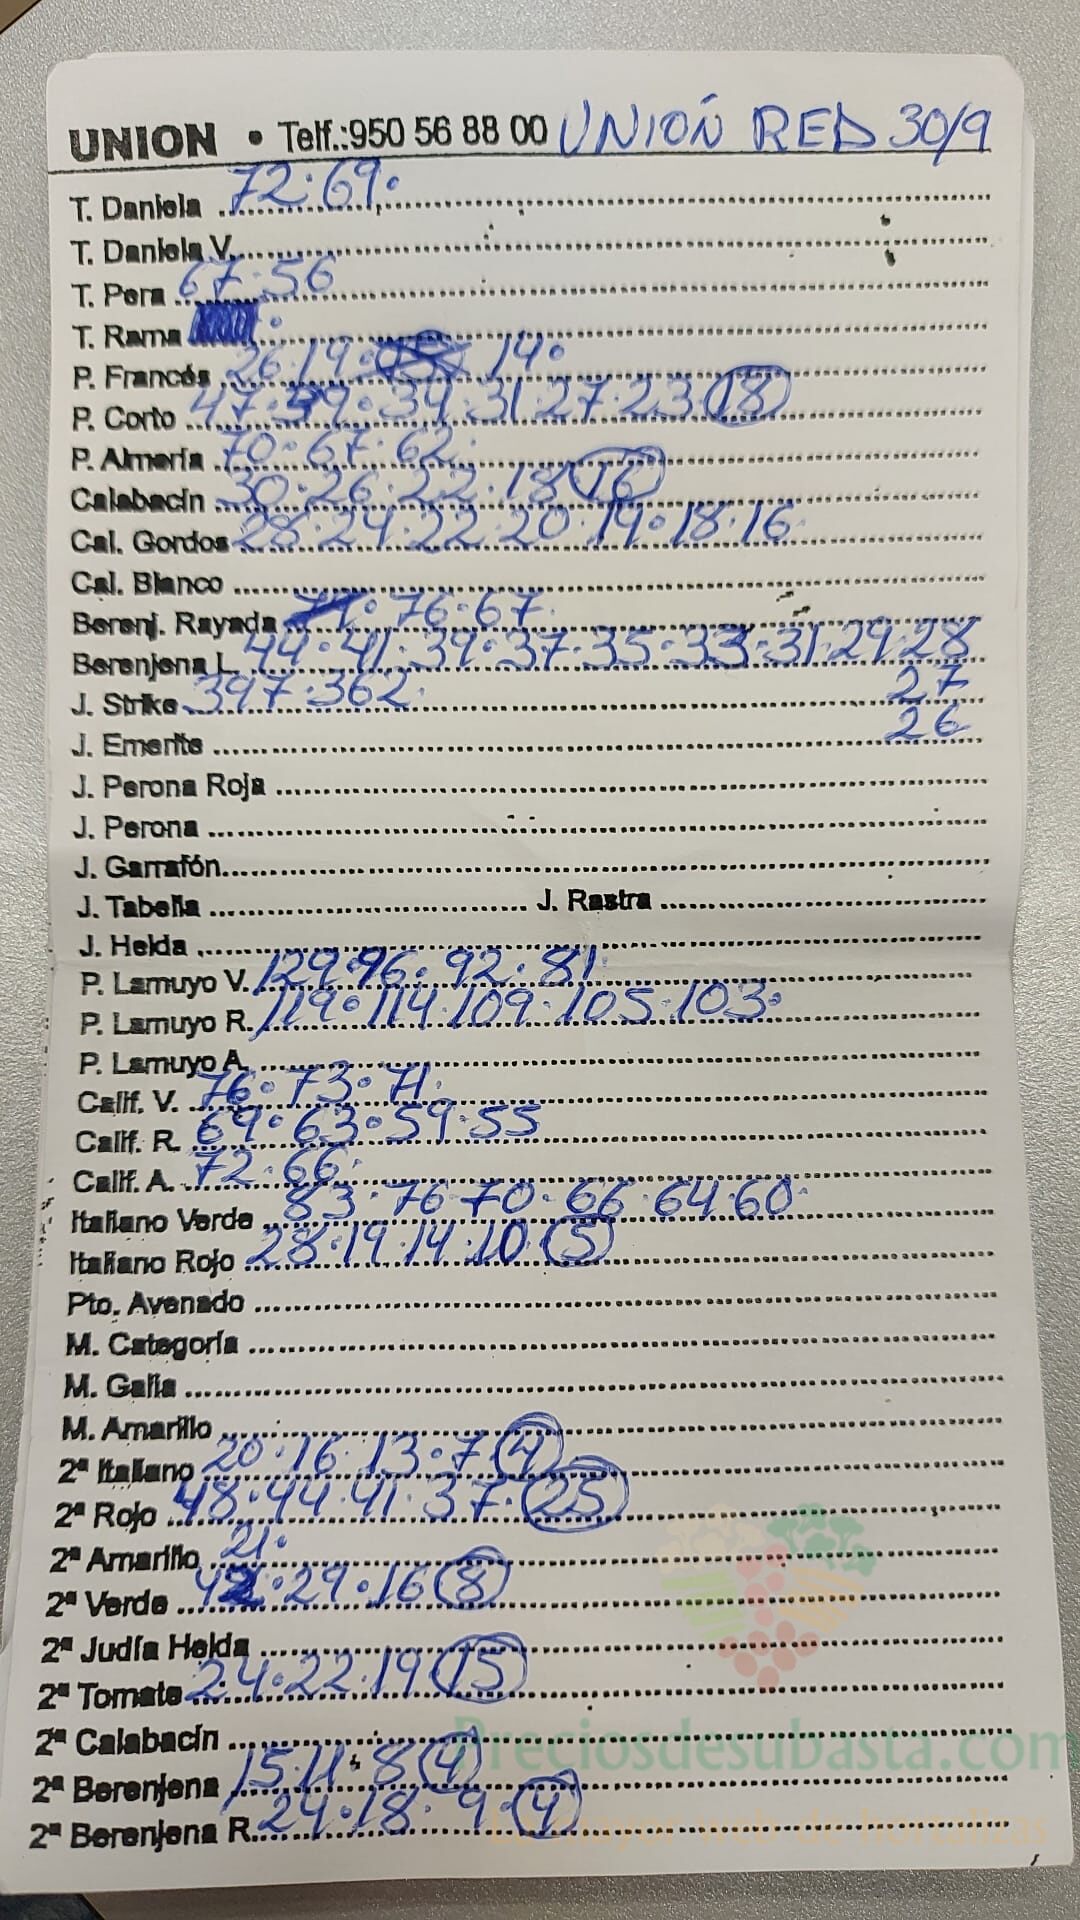 UNION • Telf.:950 56 88 00 UNIÓN RED 30/9
T. Daniela 72·69·
T. Daniela V.
T. Pera 67·56
T. Rama
P. Francés 26·19· 14·
P. Corto 47·39·34·31·27·23·18
P. Almería 70·67·62·
Calabacín 30·26·22·18·16
Cal. Gordos 28·24·22·20·19·18·16·
Cal. Blanco
Berenj. Rayada 76·67·
Berenjena L. 44·41·39·37·35·33·31·29·28
J. Strike 397·362· 27
J. Emerite 26
J. Perona Roja
J. Perona
J. Garrafón
J. Tabella J. Rastra
J. Helda
P. Lamuyo V. 129·96·92·81·
P. Lamuyo R. 119·114·109·105·103·
P. Lamuyo A.
Calif. V. 76·73·71·
Calif. R. 69·63·59·55
Calif. A. 72·66·
Italiano Verde 83·76·70·66·64·60·
Italiano Rojo 28·19·14·10·5
Pto. Avenado
M. Categoría
M. Galia
M. Amarillo
2ª Italiano 20·16·13·7·4
2ª Rojo 48·44·41·37·25
2ª Amarillo 21·
2ª Verde 42·29·16·8
2ª Judía Helda
2ª Tomate 24·22·19·15
2ª Calabacín
Preciosdesubasta.com
2ª Berenjena 15·11·8·4
2ª Berenjena R. 24·18·9·4
La mayor web de hortalizas